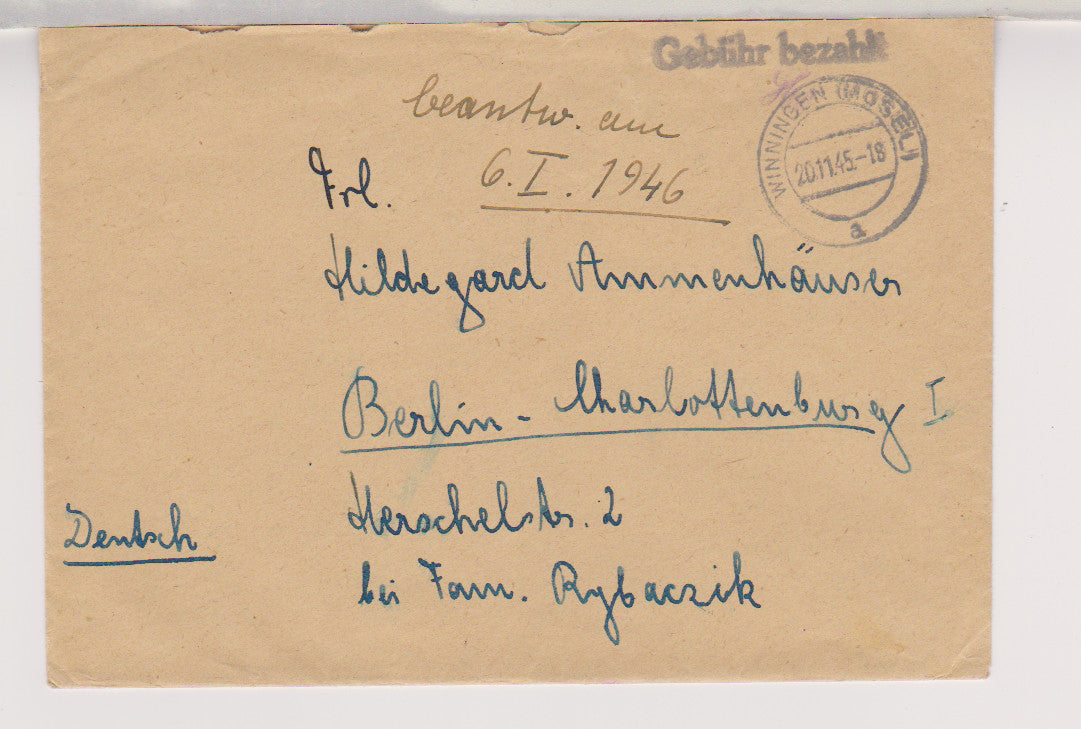 Gebühr bezahlt
WINNINGEN (MOSEL)
20.11.45.-18
a
beantw. am
6.I.1946
Frl.
Hildegard Ammenhäuser
Berlin - Charlottenburg I
Herschelstr. 2
bei Fam. Rybaczik
Deutsch